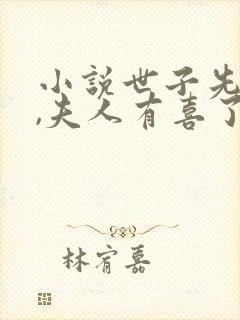 小説世子先
,夫人有喜了
林宥嘉